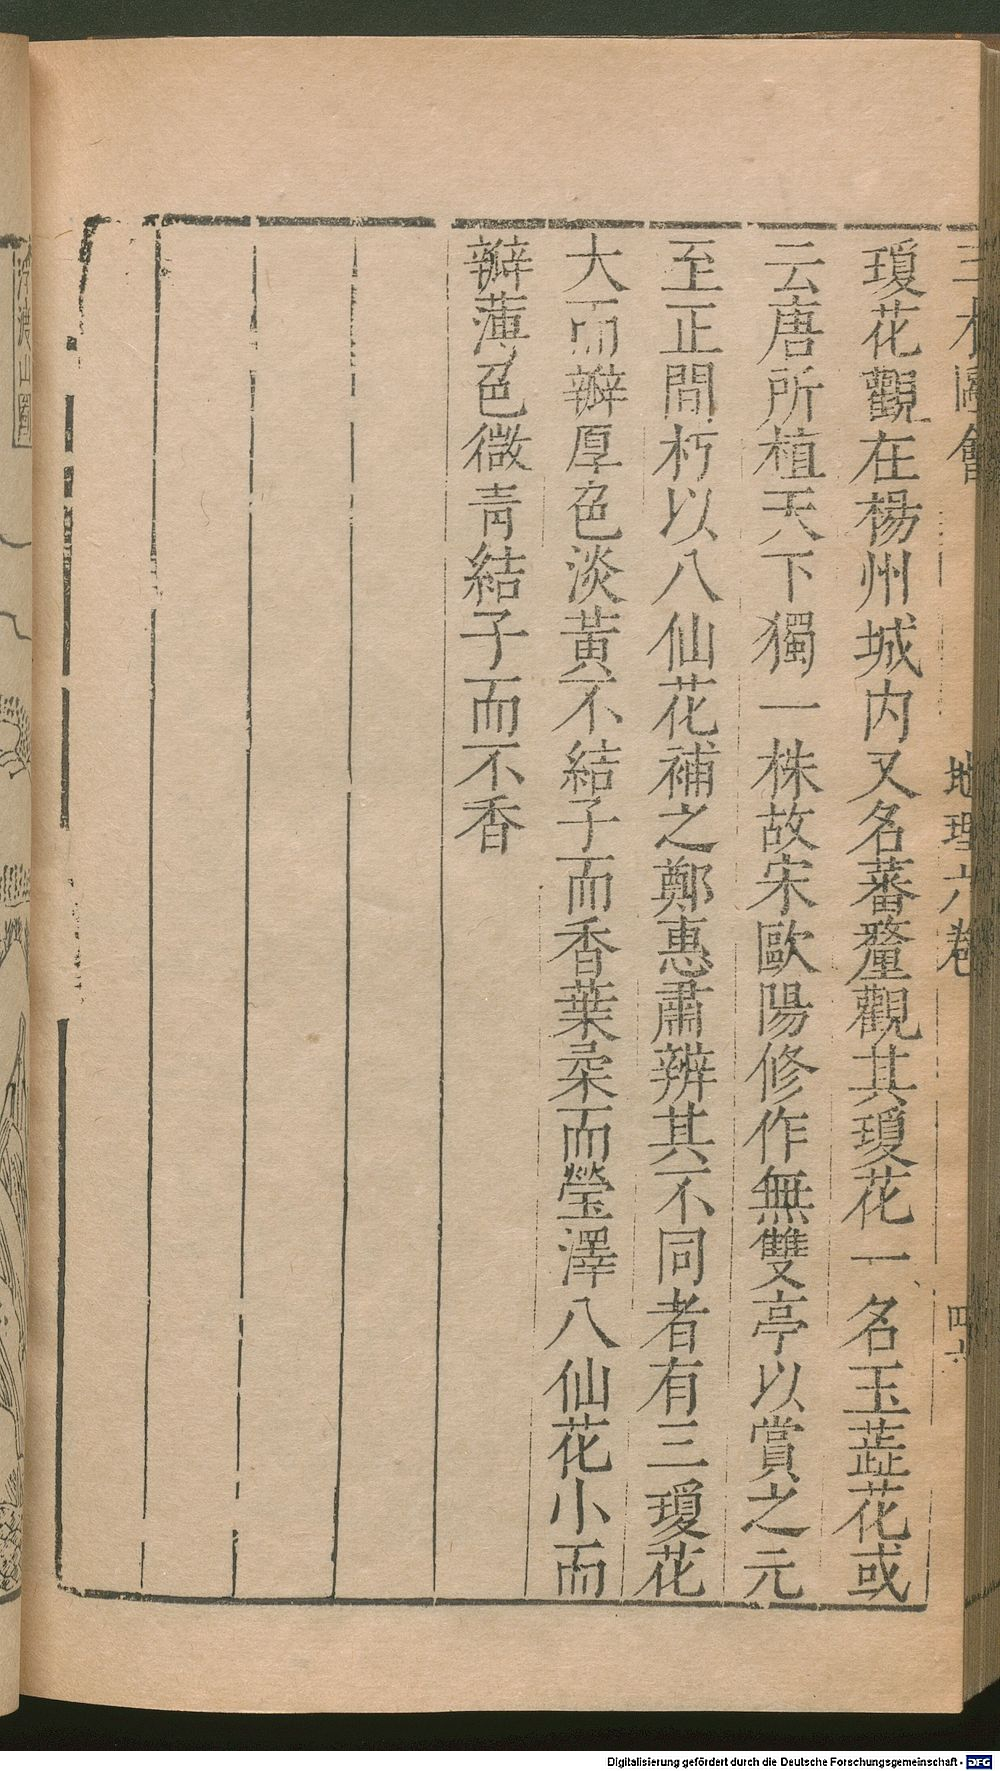 三才圖會
地理六卷
瓊花觀在楊州城内又名蕃釐觀其瓊花一名玉蘂花或
云唐所植天下獨一株故宋歐陽修作無雙亭以賞之元
至正間朽以八仙花補之鄭惠肅辨其不同者有三瓊花
大而瓣厚色淡黃不結子而香葉柔而瑩澤八仙花小而
瓣薄色微青結子而不香
山圖
Digitalisierung gefördert durch die Deutsche Forschungsgemeinschaft - DFG